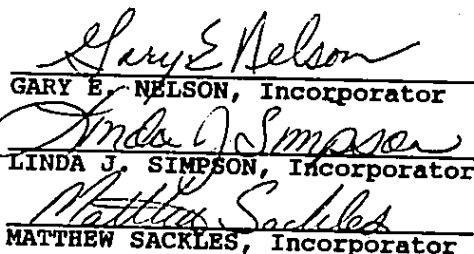 Gary E Nelson
GARY E. NELSON, Incorporator
Linda J Simpson
LINDA J. SIMPSON, Incorporator
Matthew Sackles
MATTHEW SACKLES, Incorporator